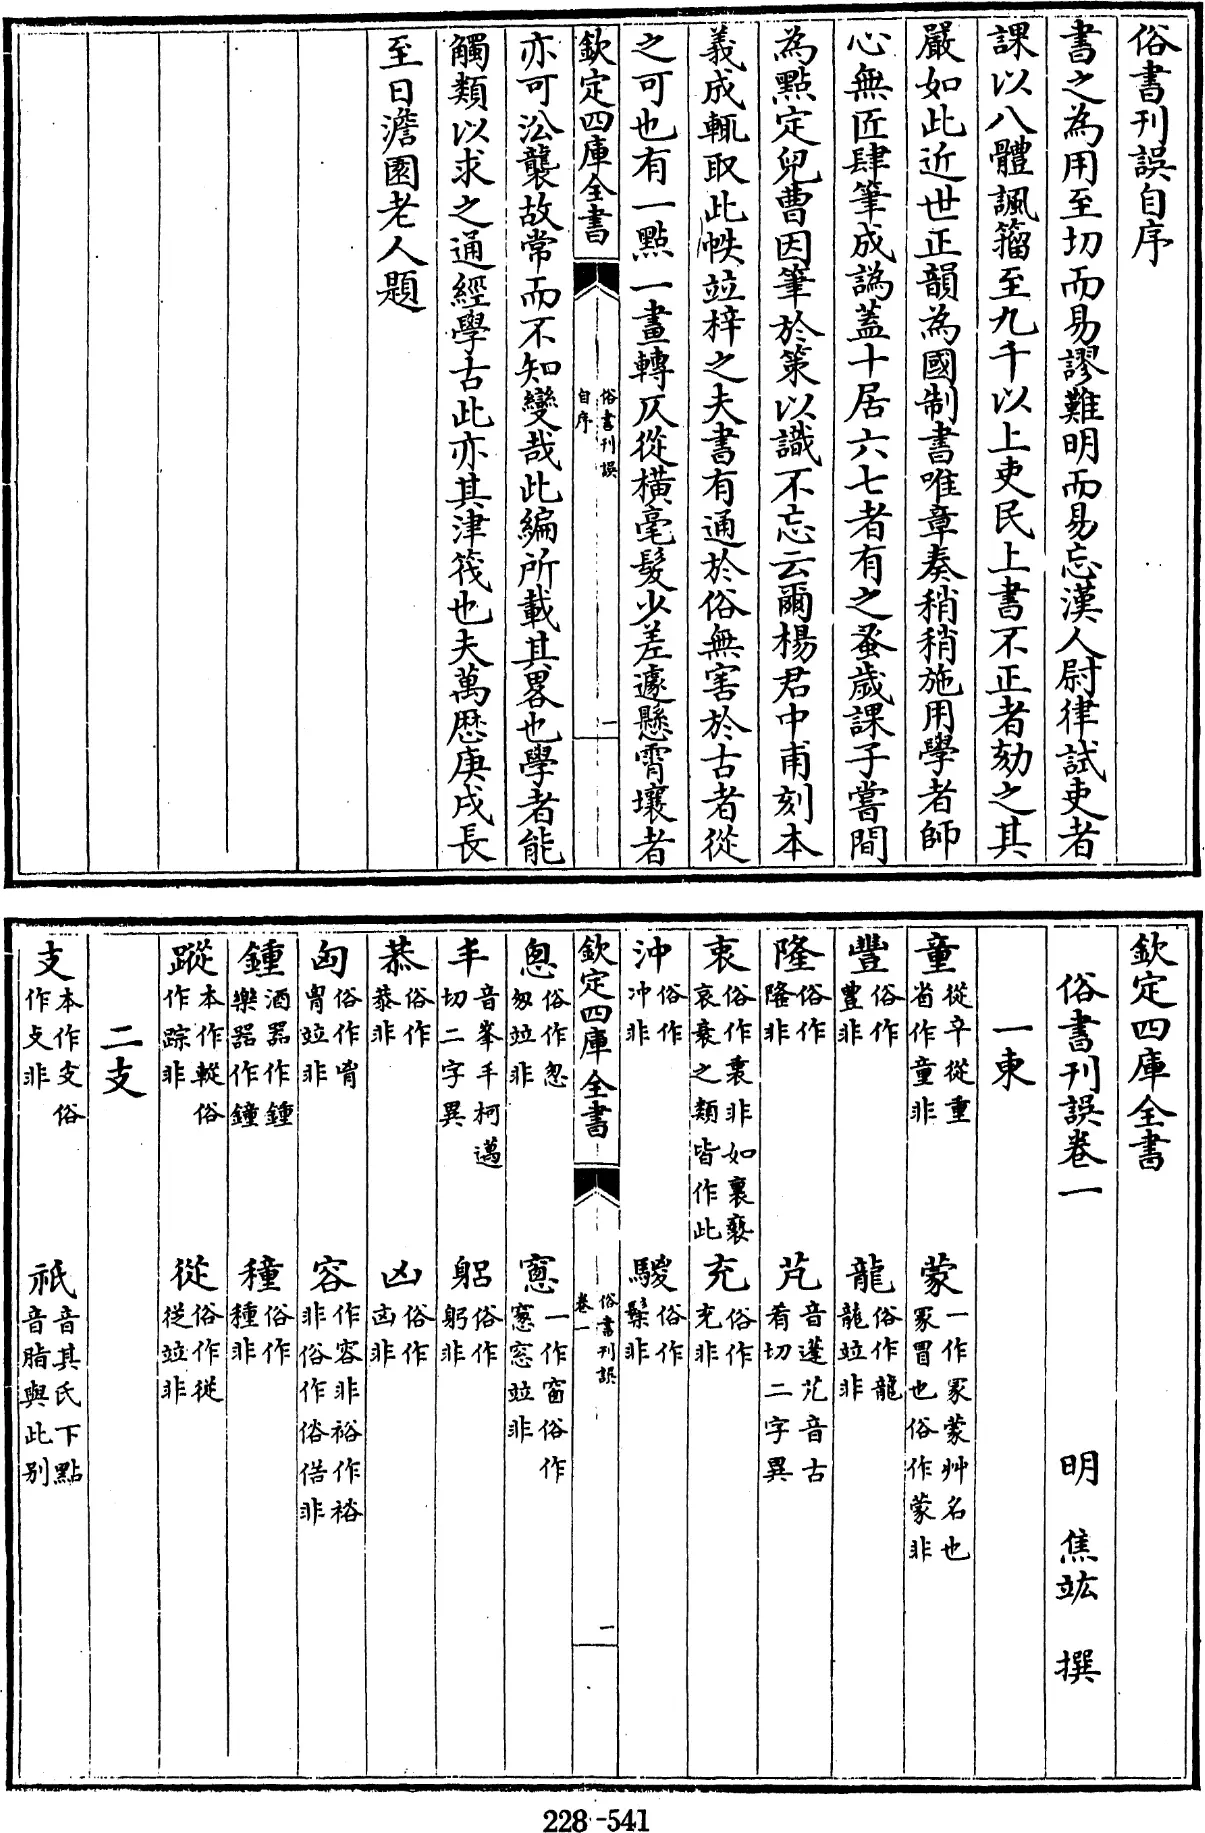 俗書刊誤自序
書之為用至切而易謬難明而易忘漢人尉律試吏者
課以八體諷籀至九千以上吏民上書不正者劾之其
嚴如此近世正韻為國制書唯章奏稍稍施用學者師
心無匠肆筆成譌蓋十居六七者有之蚤歲課子嘗間
為點定兒曹因筆於策以識不忘云爾楊君中甫刻本
義成輒取此帙竝梓之夫書有通於俗無害於古者從
之可也有一點一畫轉仄從橫毫髮少差遽懸霄壤者
欽定四庫全書
俗書刊誤
自序
一
亦可沿襲故常而不知變哉此編所載其畧也學者能
觸類以求之通經學古此亦其津筏也夫萬歷庚戌長
至日澹園老人題
欽定四庫全書
俗書刊誤卷一
明 焦竑 撰
一東
童從䇂從重省作童非
蒙一作冡蒙艸名也冡冒也俗作蒙非
豐俗作豐非
龍俗作龍龍竝非
隆俗作隆非
芃音蓬艽音古肴切二字異
衷俗作衷非如裏褻哀衰之類皆作此
充俗作充非
沖俗作冲非
騣俗作鬃非
悤俗作怱匆竝非
窻一作窗俗作窓窓竝非
欽定四庫全書
俗書刊誤
卷一
一
丰音峯丯柯邁切二字異
躳俗作躬非
恭俗作恭非
凶俗作凶非
匈俗作胷胷竝非
容作容非裕作裕非俗作俗偕非
鍾酒器作鍾樂器作鐘
種俗作種非
蹤本作䡮俗作踪非
從俗作従從竝非
二支
支本作支俗作攴非
祇音其氏下點音脂與此別
228-541